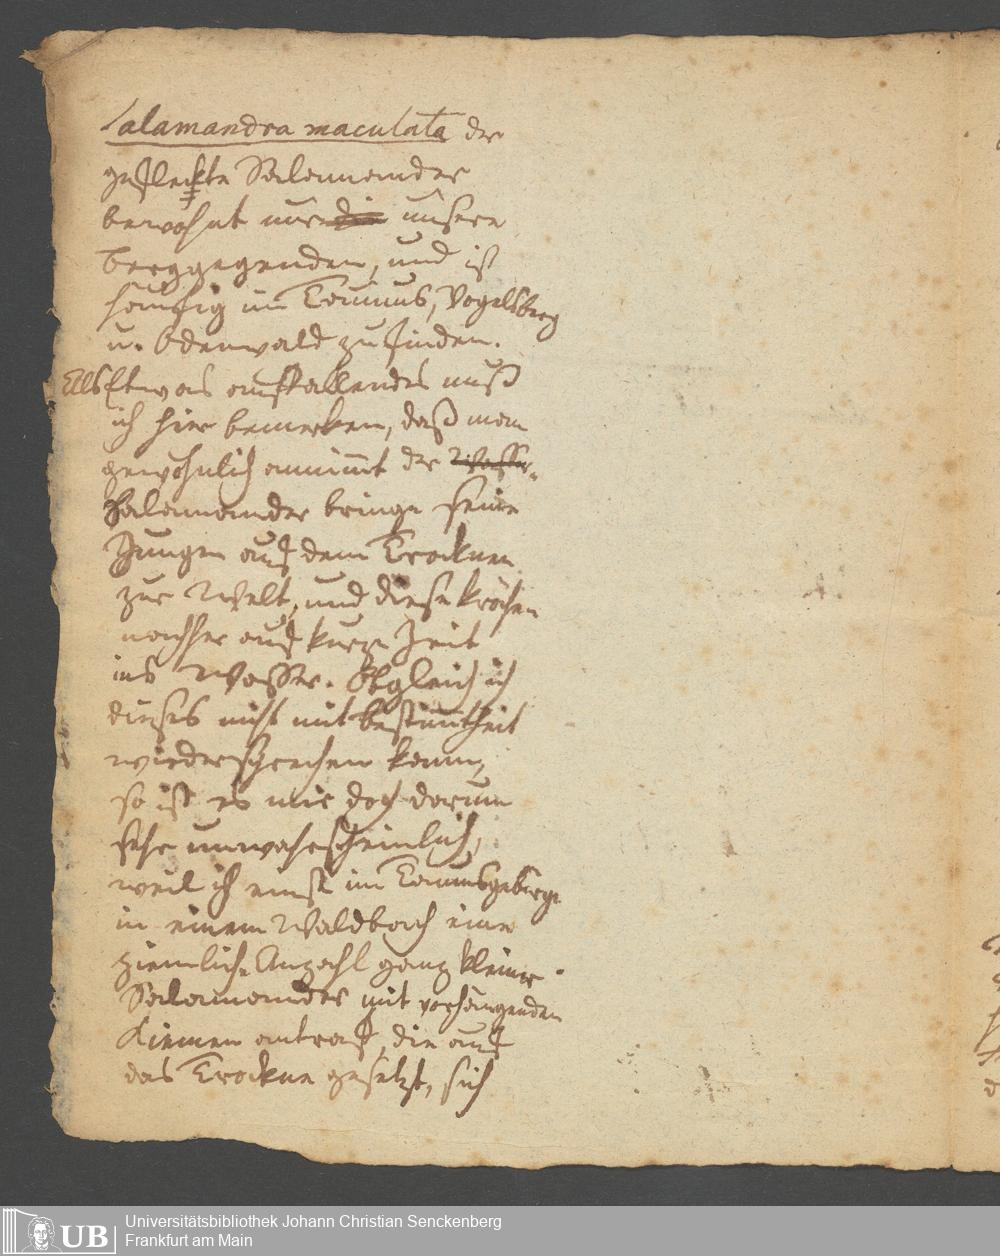 Salamandra maculata der
gefleckte Salamander
bewohnt nur die unsere
berggegenden, und ist
häufig im Taunus, Vogelsberg
u. Odenwald zu finden.
Als Etwas auffallendes muß
ich hier bemerken, daß man
gewöhnlich annimt der Wasser-
Salamander bringe seine
Jungen auf dem Trocknen
zur Welt, und diese kröchen
nachher auf kurze Zeit
ins Wasser. Obgleich ich
dieses nicht mit bestimtheit
wiedersprechen kann,
so ist es mir doch darum
sehr unwahrscheinlich,
weil ich einst im Taunusgebirge
in einem Waldbach eine
ziemliche Anzahl ganz kleiner
Salamander mit vorhängenden
Kiemen antraf, die auf
das Trockne gesetzt, sich
Universitätsbibliothek Johann Christian Senckenberg
Frankfurt am Main
UB